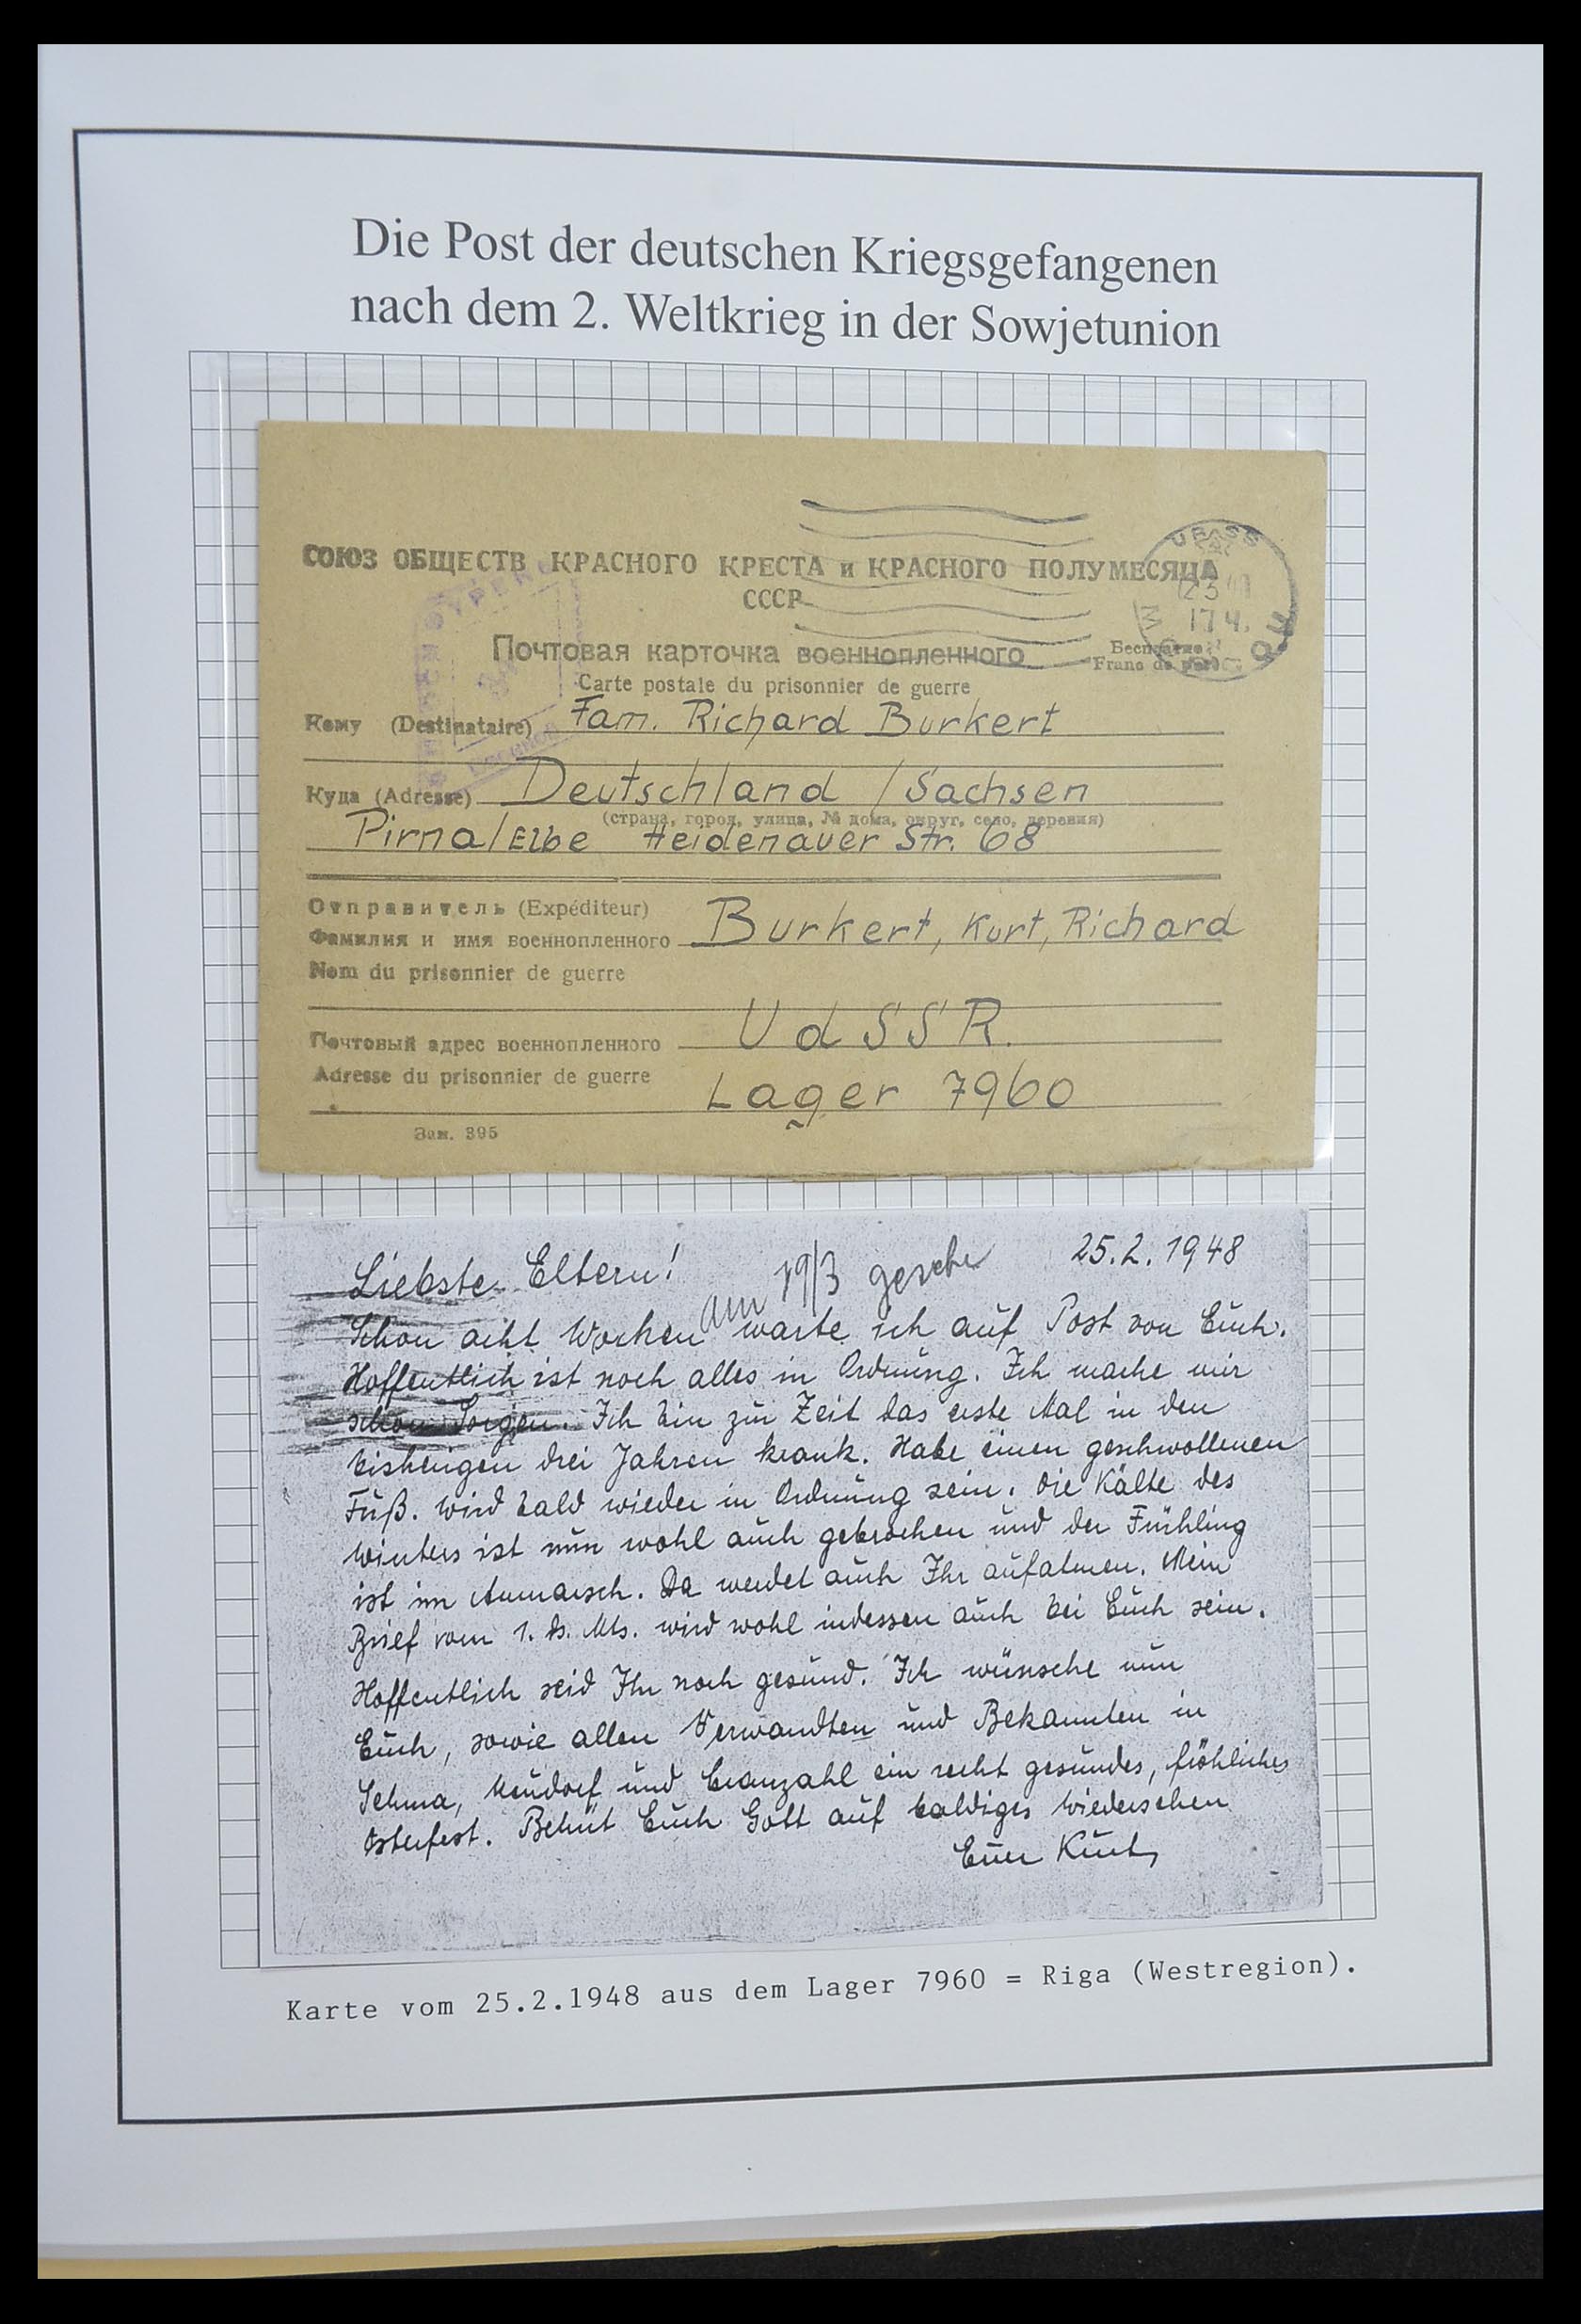 Die Post der deutschen Kriegsgefangenen
nach dem 2. Weltkrieg in der Sowjetunion
СОЮЗ ОБЩЕСТВ КРАСНОГО КРЕСТА и КРАСНОГО ПОЛУМЕСЯЦА
СССР
Почтовая карточка военнопленного
Бесплатно
Franc de port
Carte postale du prisonnier de guerre
Кому (Destinataire) Fam. Richard Burkert
Куда (Adresse) Deutschland / Sachsen
(страна, город, улица, № дома, округ, село, деревня)
Pirna/Elbe Heidenauer Str. 68
Отправитель (Expéditeur)
Фамилия и имя военнопленного Burkert, Kurt, Richard
Nom du prisonnier de guerre
Почтовый адрес военнопленного UdSSR.
Adresse du prisonnier de guerre Lager 7960
Зак. 395
Liebste Eltern! am 19/3 25.2.1948
Schon acht Wochen warte ich auf Post von Euch.
Hoffentlich ist noch alles in Ordnung. Ich mache mir
schon Sorgen. Ich bin zur Zeit das erste Mal in den
bisherigen drei Jahren krank. Habe einen geschwollenen
Fuß. Wird bald wieder in Ordnung sein. Die Kälte des
Winters ist nun wohl auch gebrochen und der Frühling
ist im Anmarsch. Da werdet auch Ihr aufatmen. Mein
Brief vom 1. ds. Mts. wird wohl indessen auch bei Euch sein.
Hoffentlich seid Ihr noch gesund. Ich wünsche nun
Euch, sowie allen Verwandten und Bekannten in
Sehma, Neudorf und Cranzahl ein recht gesundes, fröhliches
Osterfest. Behüt Euch Gott auf baldiges Wiedersehen
Euer Kurt
Karte vom 25.2.1948 aus dem Lager 7960 = Riga (Westregion).